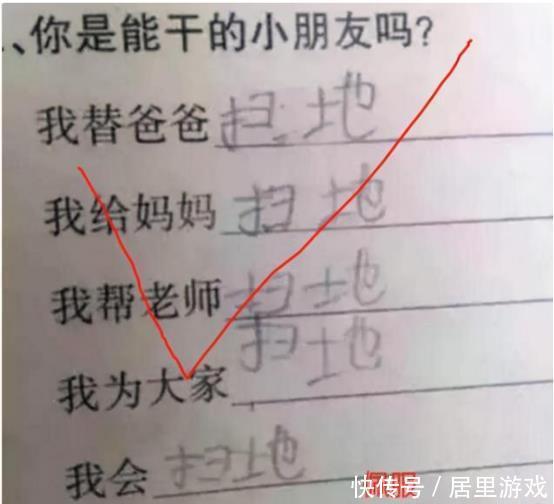 、你是能干的小朋友吗?
我替爸爸扫地
我给妈妈扫地
我帮老师扫地
我为大家扫地
我会扫地
快传号/居里游戏